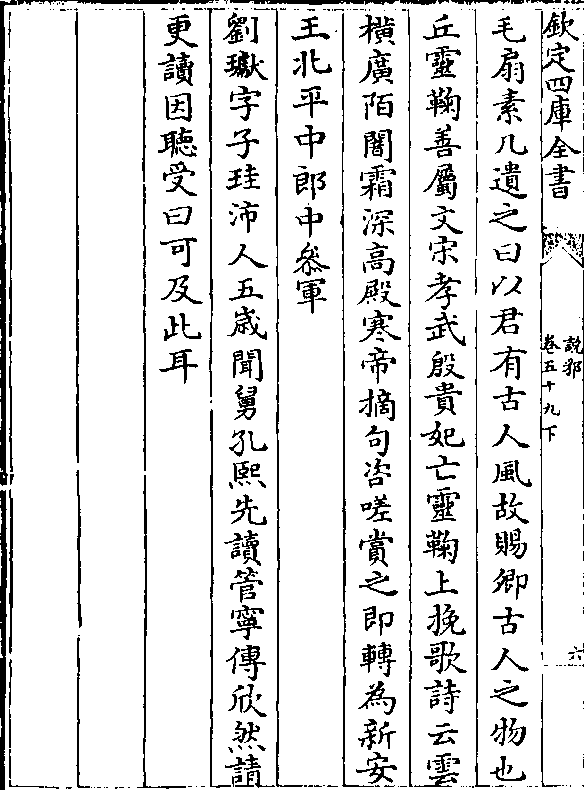 欽定四庫全書
說郛
卷五十九下
六
毛扇素几遺之曰以君有古人風故賜卿古人之物也
丘靈鞠善屬文宋孝武殷貴妃亡靈鞠上挽歌詩云雲
橫廣陌闇霜深高殿寒帝摘句咨嗟賞之即轉為新安
王北平中郎中叅軍
劉瓛字子珪沛人五歲聞舅孔熙先讀管寧傳欣然請
更讀因聽受曰可及此耳